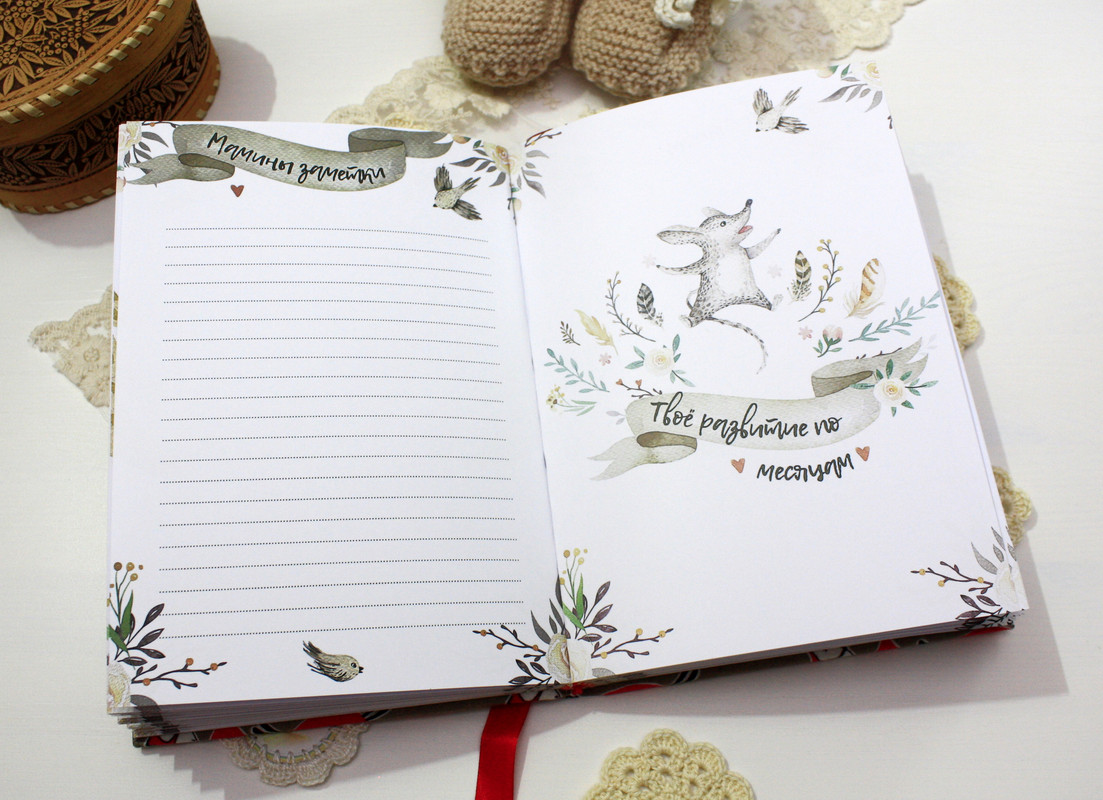 Мамины заметки
Твоё развитие по
месяцам